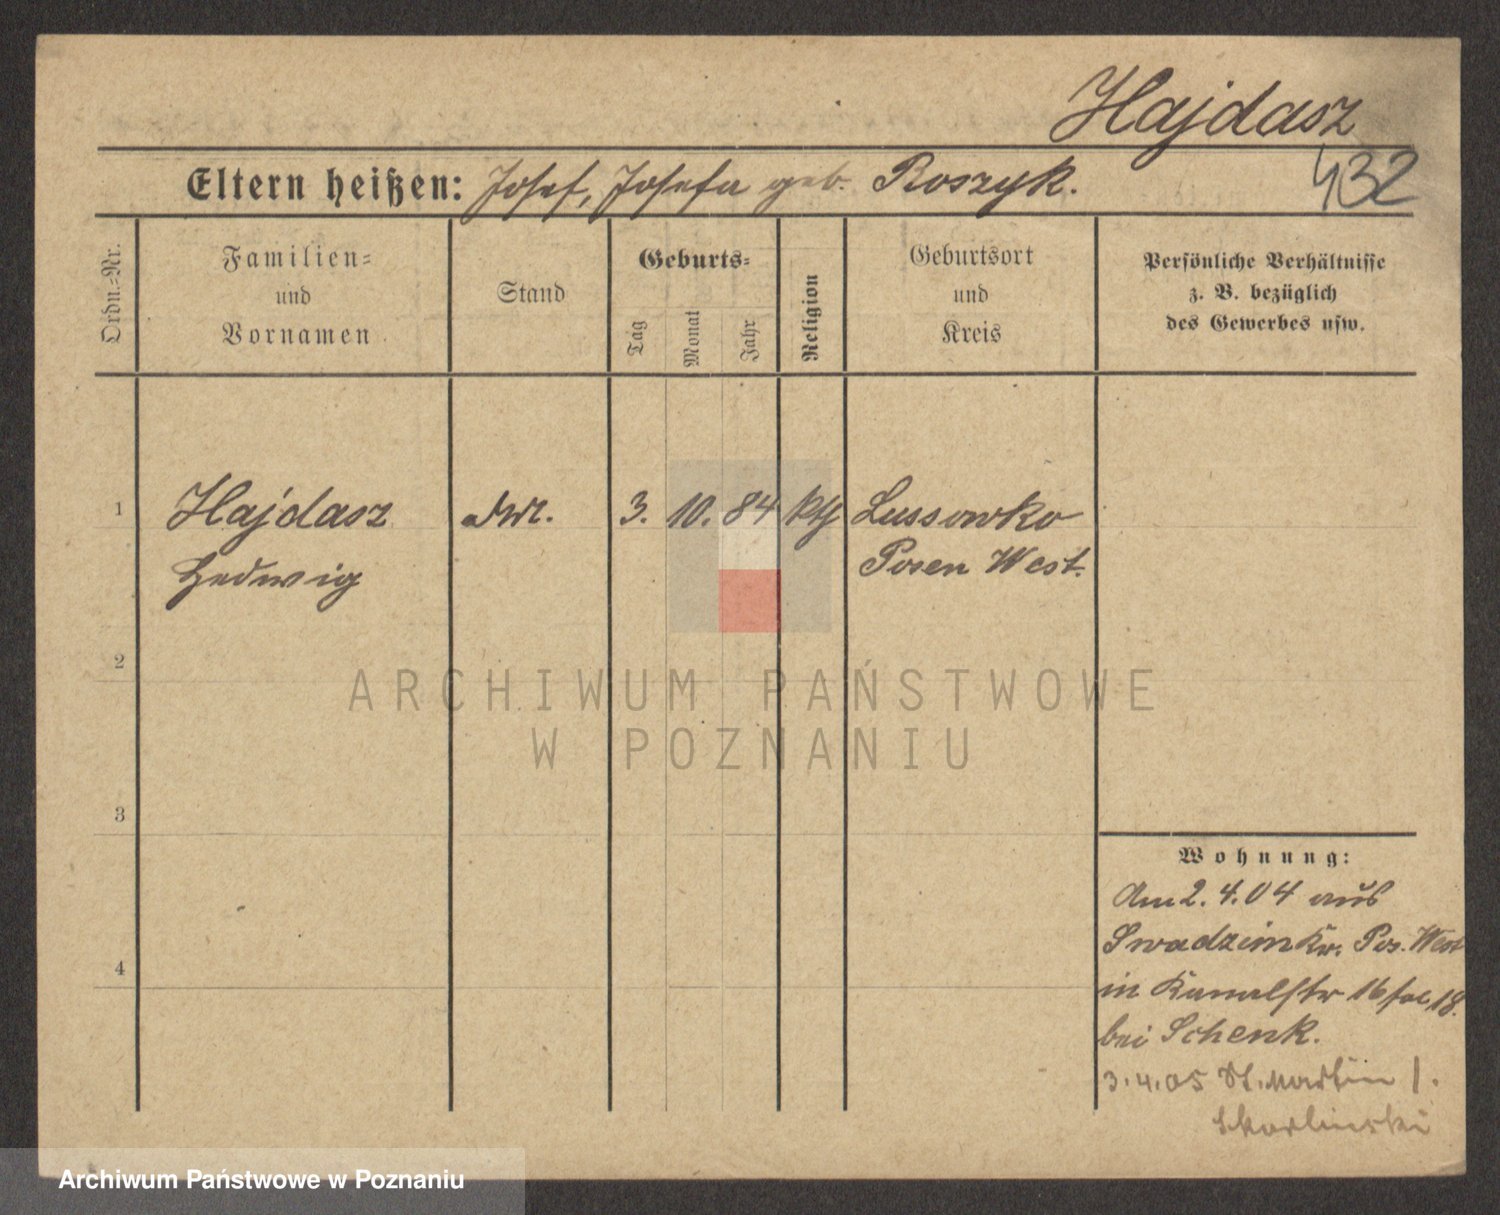 Hajdasz
432
Eltern heißen: Josef, Josefa geb. Roszyk.
Ordn.-Nr.
Familien-
und
Vornamen
Stand
Geburts-
Tag
Monat
Jahr
Religion
Geburtsort
und
Kreis
Persönliche Verhältnisse
z. B. bezüglich
des Gewerbes usw.
1 Hajdasz 3. 10. 84 kth Lussowko
Hedwig Posen West.
2
3
4
Wohnung:
Am 2. 4. 04 aus
Swadzim Kr. Pos. West
in Kanalstr 16 fol 18.
bei Schenk.
3.4.05 St. Martin 1.
Skorlinski
ARCHIWUM PAŃSTWOWE
W POZNANIU
Archiwum Państwowe w Poznaniu